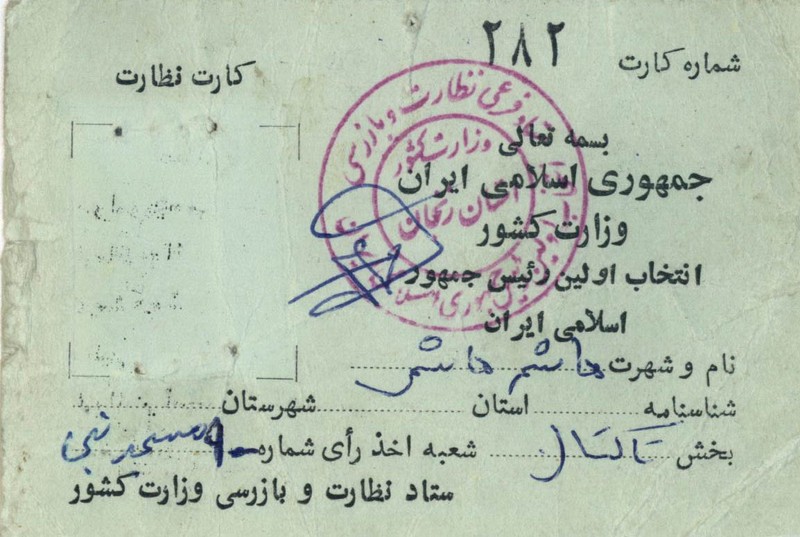 شماره کارت ۲۸۲
کارت نظارت
بسمه تعالی
جمهوری اسلامی ایران
وزارت کشور
انتخاب اولین رئیس جمهور
اسلامی ایران
نام و شهرت هاشم هاشمی
شناسنامه استان شهرستان
بخش شعبه اخذ رأی شماره ۹۰ مسجد نبی
ستاد نظارت و بازرسی وزارت کشور
فرعی نظارت و بازرسی
وزارت کشور
استان زنجان